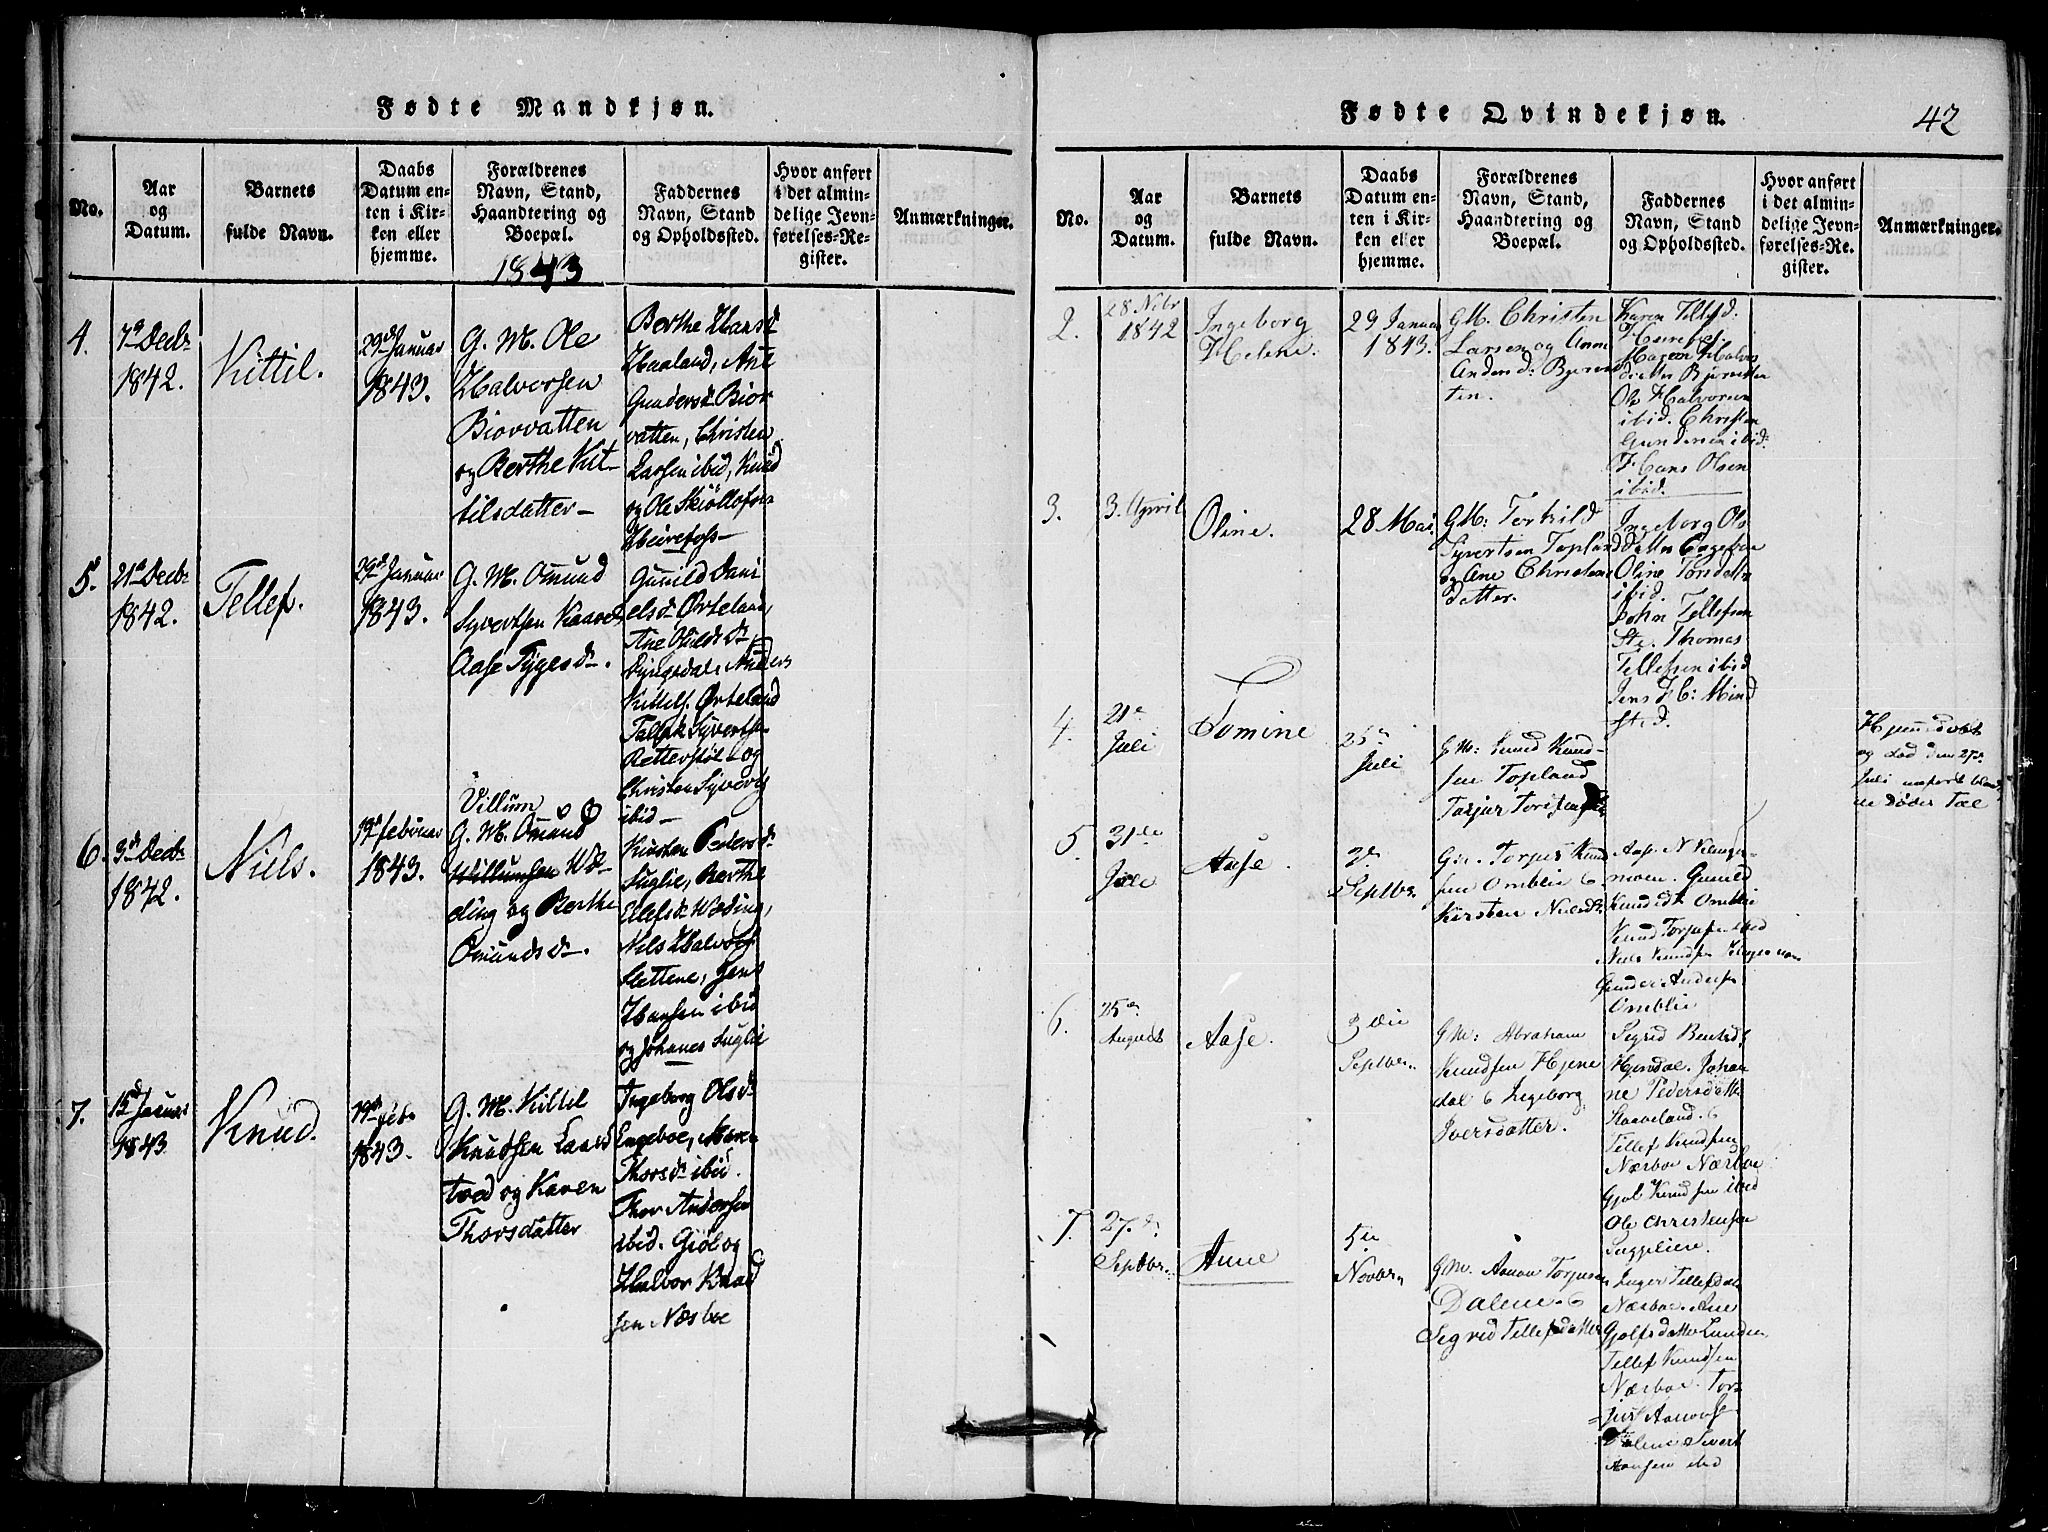 Fødte Mandkjøn.
No.
Aar
og
Datum.
Barnets
fulde Navn.
Daabs
Datum en-
ten i Kir-
ken eller
hjemme.
Forældrenes
Navn, Stand,
Haandtering og
Boepæl.
Faddernes
Navn, Stand
og Opholdssted.
Hvor anført
i det almin-
delige Jevn-
førelses-Re-
gister.
Anmærkninger.
1843
4.
7de Decbr
1842.
Kittil.
29de Januar
1843.
G. M. Ole
Halvorsen
Biorvatten
og Berthe Kit-
tilsdatter
Berthe Hansd
Haaland, Ane
Gundersd Bior
vatten, Christen
Larsen ibid, Knud
og Ole
Heirefoss
5.
21de Decbr
1842.
Tellef.
29de Januar
1843.
G. M. Omund
Syvertsen
Aase Tygesdr.
Gunild Dani
elsd Ørteland,
Ane
Anders
Kittels. Ørteland
Syverts
og
Christen Syverts
ibid
6.
3de Decbr
1842.
Niels.
19de Februar
1843.
Villum
G. M. Omund
Willumsen Wæ-
ding og Berthe
Omundsdr.
Kirsten Pedersdr
Suglie, Berthe
Ellefsdr Wæding,
Niels Halvors
Slettene, Jens
Hansen ibid
og Johanes Suglie
7.
15de Januar
1843
Knud.
19de Feb.
1843.
G. M. Kittel
Knudsen Laas
tved og Karen
Thorsdatter
Ingeborg Olsdr
Engeboe, Maren
Thorsdr ibid.
Thor Andersen
ibid. Giøl og
Halvor Knud
sen Næsboe
Fødte Qvindekjøn.
42
No.
Aar
og
Datum.
Barnets
fulde Navn.
Daabs
Datum en-
ten i Kir-
ken eller
hjemme.
Forældrenes
Navn, Stand,
Haandtering og
Boepæl.
Faddernes
Navn, Stand
og Opholdssted.
Hvor anført
i det almin-
delige Jevn-
førelses-Re-
gister.
Anmærkninger.
2.
28 Nvbr
1842
Ingeborg
Helene.
29 Januar
1843.
GM. Christen
Larsen og Anne
Andersd: Bjorvat
ten.
Karen Tellefsd.
Heirefos.
Maren Halvors
datter Bjorvatten
Ole Halvorsen
ibid. Christen
Gundersen ibid.
Hans Olsen
ibid.
3.
3. April
Oline.
28 Mai.
GM: Terkild
Syvertsen Topland
og Ane Christens
datter.
Ingeborg Ols
datter Engeboe
Oline Torsdatter
ibid.
John Tellefsen
Thomas
Tellefsen ibid
Jens
4.
21de
Juli
Tomine
25de
Juli
GM: Knud Knud-
sen Topland
Hjemmedøbt
og død den 27de
Juli anført blandt
de døde
5.
31de
Juli
Aase.
3de
Septbr
Gm. Torjus Knud
sen Omblie &
Kirsten Nielsdr
Aase N
moen. Gunild
Knudsdtr Omblie
Knud Torjusen ibid
Niels Knudsen
Gunder Andersen
Omblie
6.
25de
August
Aase.
3die
Septbr.
GM: Abraham
Knudsen Hjene
dal & Ingeborg
Iversdatter.
Sigrid Bentsd.
Hjendal. Johan
ne Pedersdatter
Skaaveland. &
Tellef Knudsen
Næsboe Næsboe
Gjøl Knudsen ibid
Ole Christensen
7.
27de
Septbr.
Anne
5te
Novbr.
GM. Aanon Torjusen
Dalene. &
Sigrid Tellefsdatter
Inger Tellefsdatter
Næsboe. Ane
Gjølfsdatter Lunden
Tellef Knudsen
Næsboe. Tor-
jus Aanons
Dalene Sivert
Hansen ibid